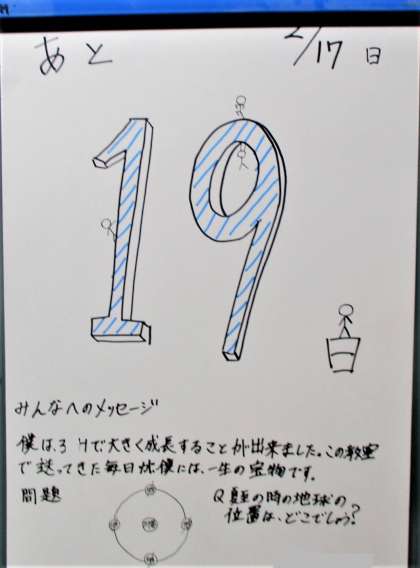 あと
2/17日
19
みんなへのメッセージ
僕は、3Hで大きく成長することが出来ました。この教室
で送ってきた毎日が僕には、一生の宝物です。
問題
Q夏至の時の地球の
位置は、どこでしょう?